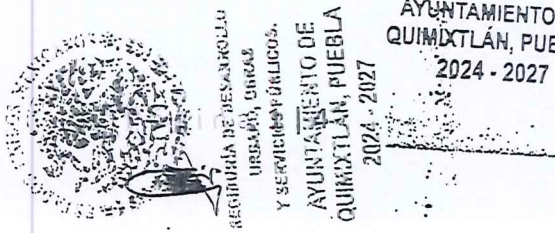 AYUNTAMIENTO
QUIMIXTLÁN, PUE
2024 - 2027
REGIDURÍA DE DESARROLLO
URBANO, OBRAS
Y SERVICIOS PÚBLICOS.
AYUNTAMIENTO DE
QUIMIXTLÁN, PUEBLA
2024 - 2027